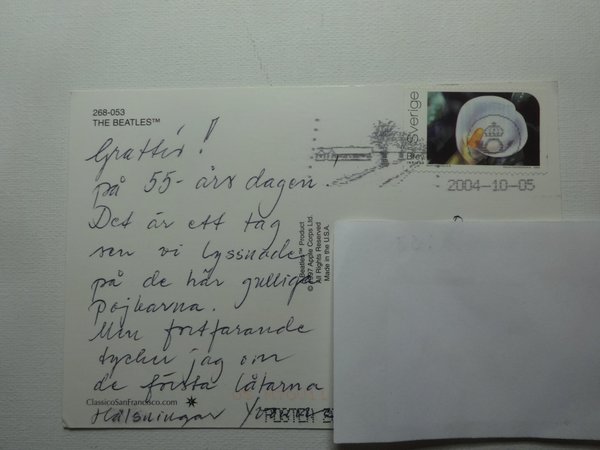 268-053
THE BEATLES™
Grattis!
på 55-års dagen.
Det är ett tag
sen vi lyssnade
på de här gulliga
pojkarna.
Men fortfarande
tycker jag om
de första låtarna
Hälsningar
ClassicoSanFrancisco.com
Beatles™ Product
© 1997 Apple Corps Ltd.
All Rights Reserved
Made in the U.S.A.
Sverige
Brev
2004-10-05
POSTEN